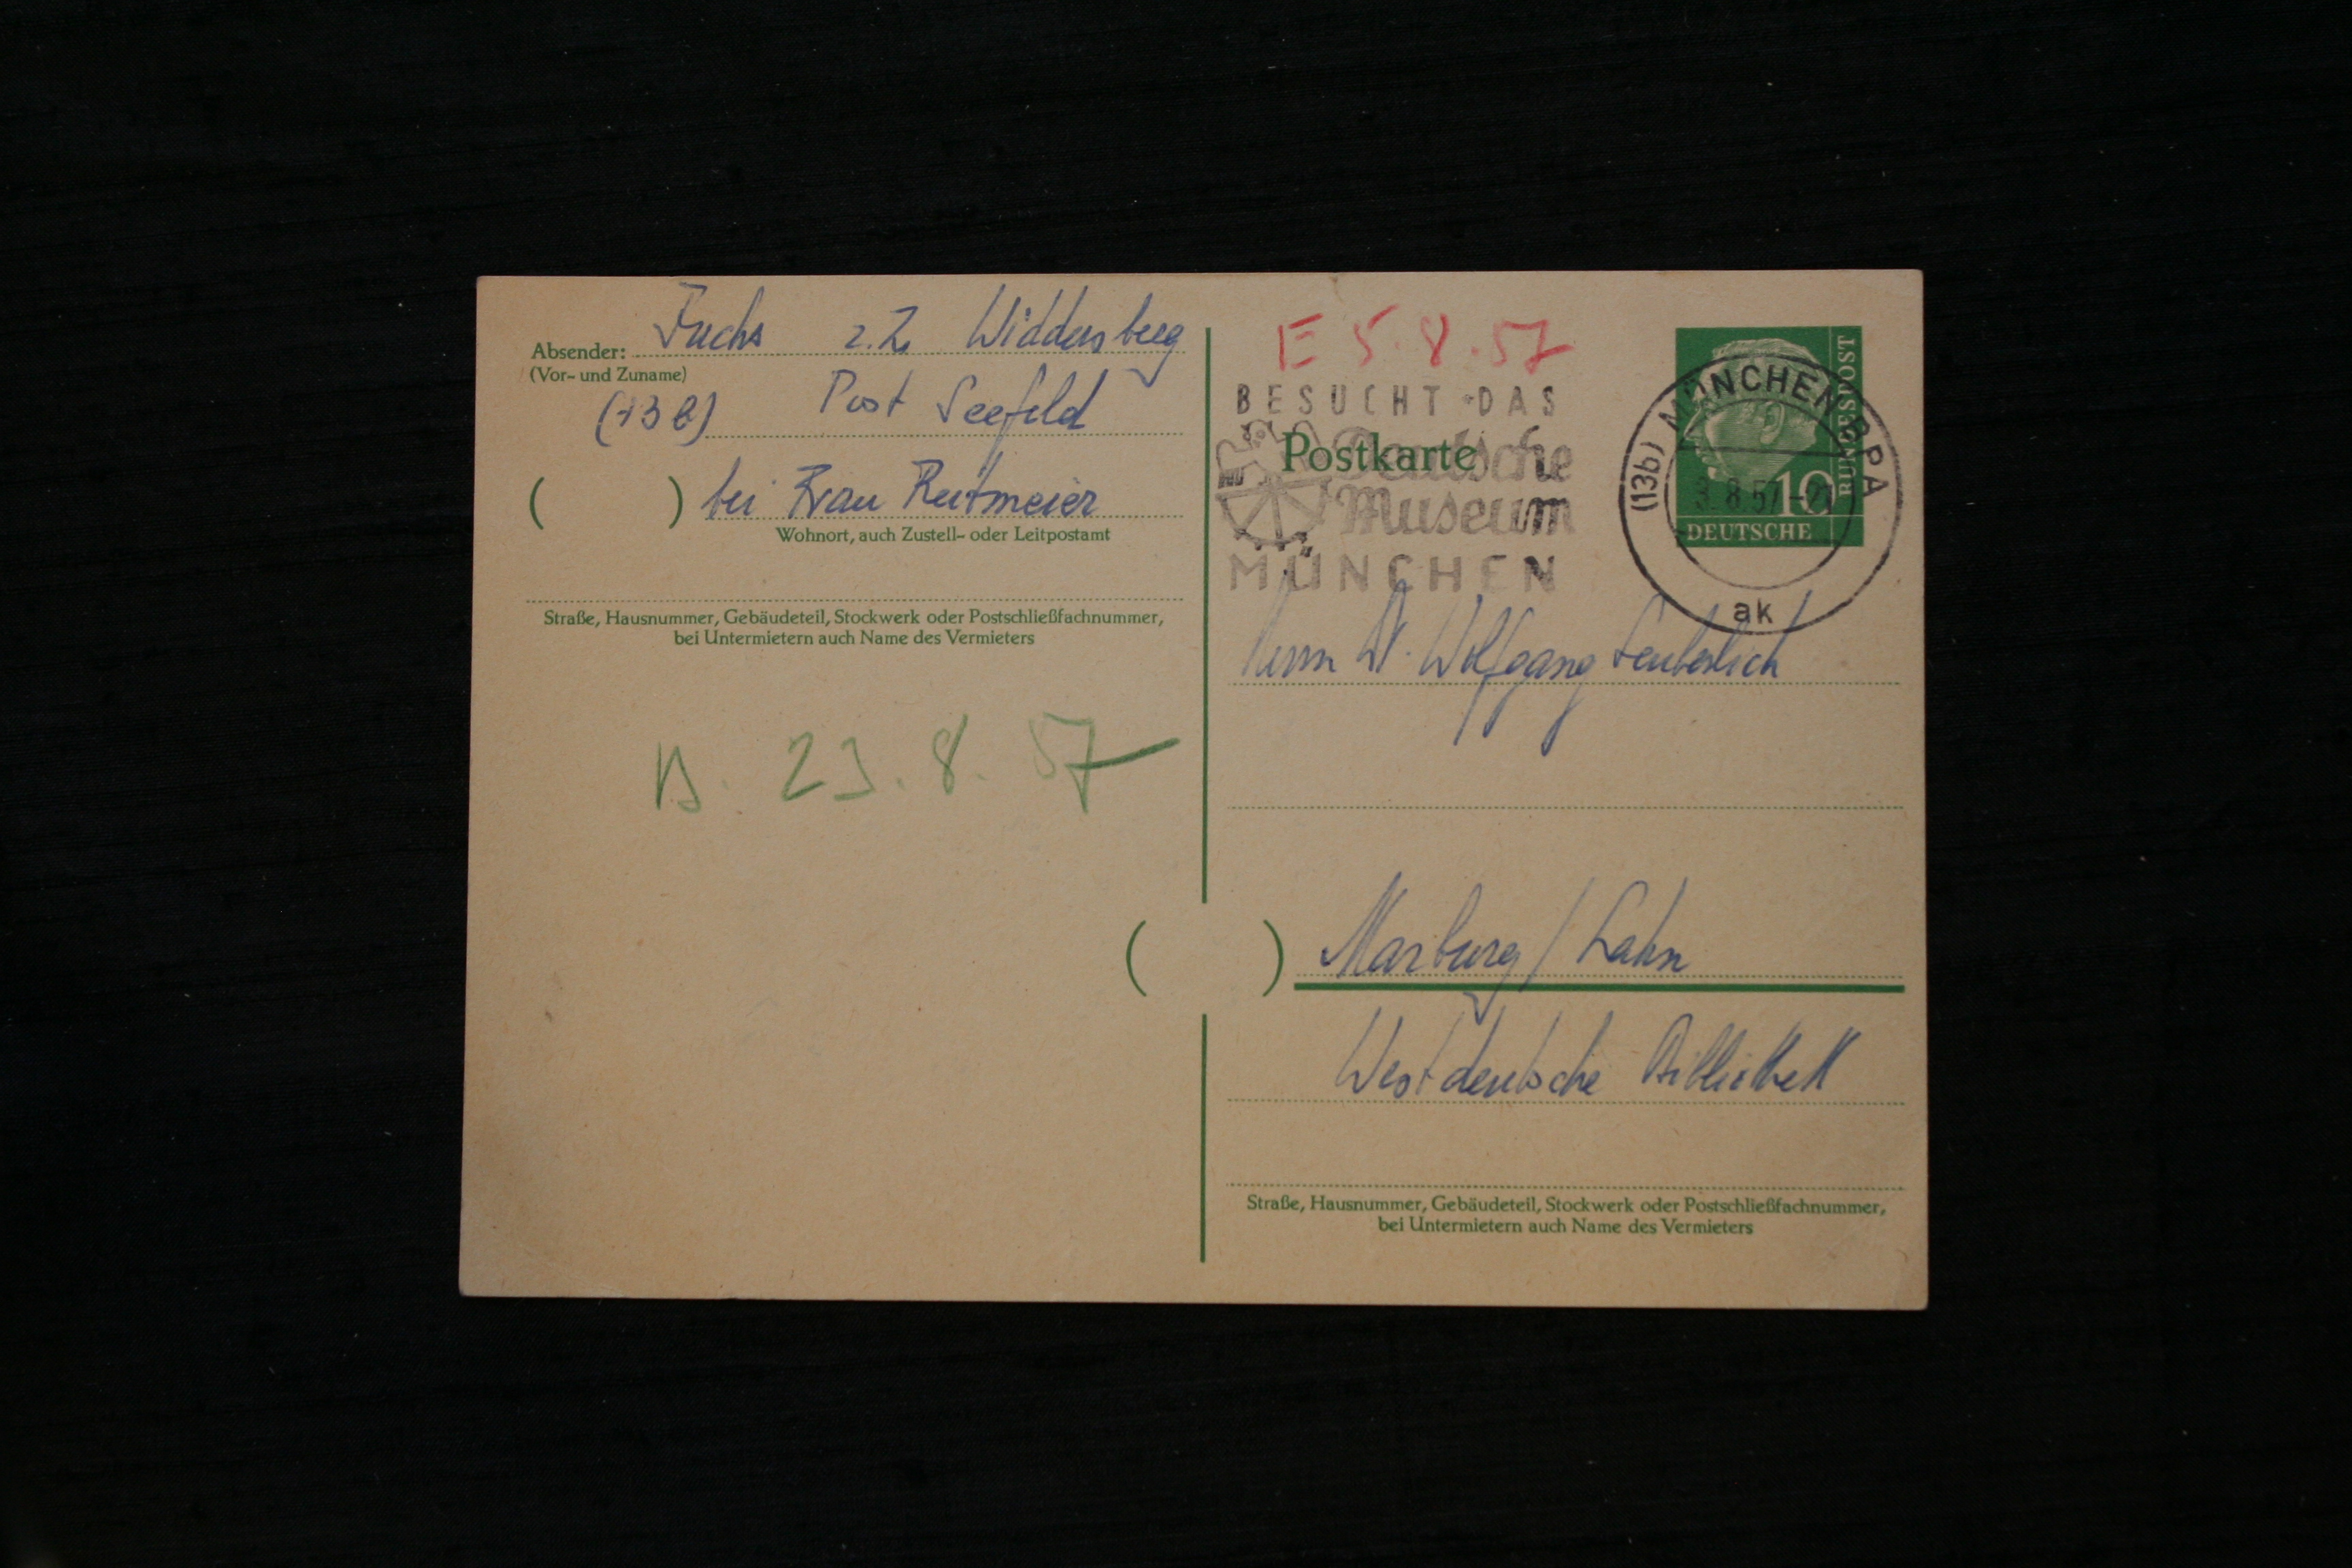 Absender: Fuchs z.Z. Widdersberg
(Vor- und Zuname)
(13b) Post Seefeld
( ) bei Frau Reitmeier
Wohnort, auch Zustell- oder Leitpostamt
Straße, Hausnummer, Gebäudeteil, Stockwerk oder Postschließfachnummer,
bei Untermietern auch Name des Vermieters
23.8.57
E 5.8.57
BESUCHT DAS
Postkarte
Deutsche
Museum
MÜNCHEN
(13b) MÜNCHEN BPA
3.8.57
ak
10
BUNDESPOST
DEUTSCHE
Herrn Dr. Wolfgang
( ) Marburg/Lahn
Westdeutsche Bibliothek
Straße, Hausnummer, Gebäudeteil, Stockwerk oder Postschließfachnummer,
bei Untermietern auch Name des Vermieters